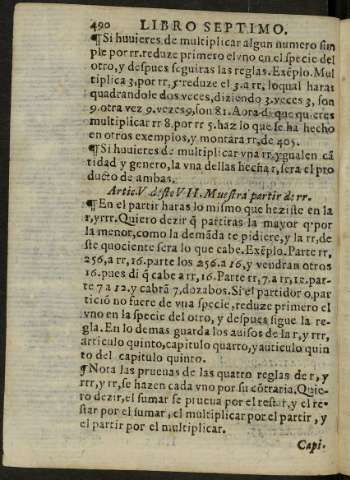 490 LIBRO SEPTIMO.
¶Si huuieres de multiplicar algun numero sim
ple por rr. reduze primero el vno en el specie del
otro, y despues seguiras las reglas. Exēplo. Mul
tiplica 3. por rr, 5 reduze el 3. a rr, lo qual haras
quadrandole dos veces, diziendo 3. veces 3, son
9. otra vez 9. vezes 9, son 81. Aora di que quieres
multiplicar rr 8. por rr 5. haz lo que se ha hecho
en otros exemplos, y montara rr, de 405.
¶Si huuieres de multiplicar vna rr, ygual en cā
tidad y genero, la vna dellas hecha r, sera el pro
ducto de ambas.
Artic. V. deste VII. Muestra partir de rr.
¶En el partir haras lo mismo que heziste en la
r, y rrr. Quiero dezir q̄ partiras la mayor q̄ por
la menor, como la demāda te pidiere, y la rr, de
ste quociente sera lo que cabe. Exēplo. Parte rr,
256, a rr, 16. parte los 256. a 16, y vendran otros
16. pues di q̄ cabe a rr, 16. Parte rr, 7. a rr, 12. par-
te 7 a 12. y cabrā 7, dozabos. Si el partidor o, par
ticiō no fuere de vna specie, reduze primero el
vno en la specie del otro, y despues sigue la re-
gla. En lo demas guarda los auisos de la r, y rrr,
articulo quinto, capitulo quarto, y auticulo quin
to del capitulo quinto.
¶Nota las prueuas de las quatro reglas de r, y
rrr, y rr, se hazen cada vno por su cōtraria. Quie-
ro dezir, el sumar se prueua por el restar, y el re-
star por el sumar, el multiplicar por el partir, y
el partir por el multiplicar.
Capi-